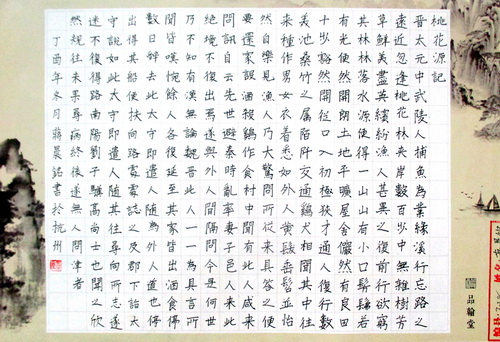 桃花源記
晉太元中武陵人捕魚為業緣溪行忘路之
遠近忽逢桃花林夾岸數百步中無雜樹芳
草鮮美落英繽紛漁人甚異之復前行欲窮
其林林盡水源便得一山山有小口髣髴若
有光便舍船從口入初極狹才通人復行數
十步豁然開朗土地平曠屋舍儼然有良田
美池桑竹之屬阡陌交通雞犬相聞其中往
來種作男女衣著悉如外人黃髮垂髫並怡
然自樂見漁人乃大驚問所從來具答之便
要還家設酒殺雞作食村中聞有此人咸來
問訊自云先世避秦時亂率妻子邑人來此
絕境不復出焉遂與外人間隔問今是何世
乃不知有漢無論魏晉此人一一為具言所
聞皆嘆惋餘人各復延至其家皆出酒食停
數日辭去此中人語云不足為外人道也既
出得其船便扶向路處處誌之及郡下詣太
守說如此太守即遣人隨其往尋向所誌遂
迷不復得路南陽劉子驥高尚士也聞之欣
然規往未果尋病終後遂無人問津者
丁酉年冬月蔣晨銘書於杭州
品翰堂